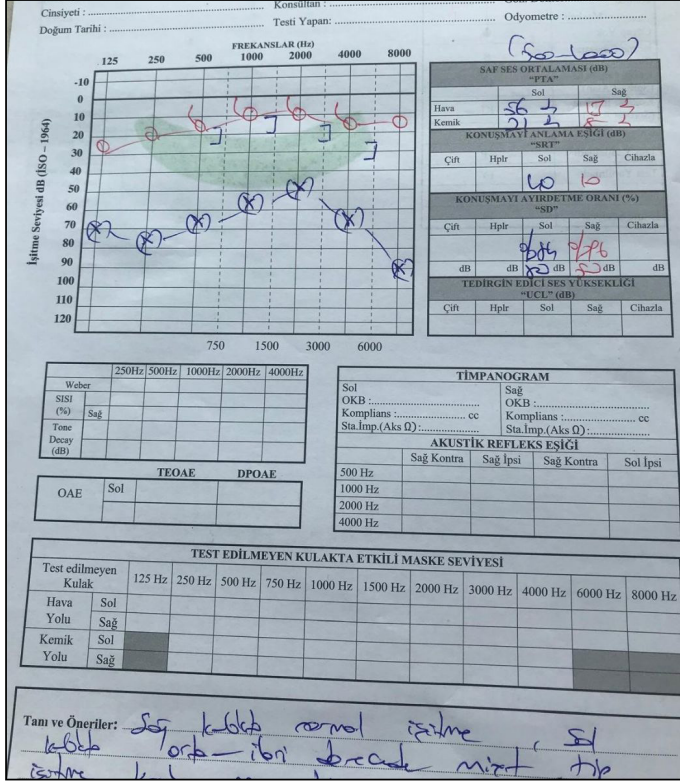 Cinsiyeti : Konsültan :
Doğum Tarihi : Testi Yapan: Odyometre :
(500-4000)
FREKANSLAR (Hz)
125 250 500 1000 2000 4000 8000
İşitme Seviyesi dB (İSO – 1964)
-10
0
10
20
30
40
50
60
70
80
90
100
110
120
750 1500 3000 6000
SAF SES ORTALAMASI (dB)
"PTA"
Sol Sağ
Hava 56
Kemik 21
KONUŞMAYI ANLAMA EŞİĞİ (dB)
"SRT"
Çift Hplr Sol Sağ Cihazla
40 10
KONUŞMAYI AYIRDETME ORANI (%)
"SD"
Çift Hplr Sol Sağ Cihazla
%84 %96
dB dB dB dB dB
TEDİRGİN EDİCİ SES YÜKSEKLİĞİ
"UCL" (dB)
Çift Hplr Sol Sağ Cihazla
250Hz 500Hz 1000Hz 2000Hz 4000Hz
Weber
SISI
(%) Sağ
Tone
Decay
(dB)
TEOAE DPOAE
OAE Sol
TİMPANOGRAM
Sol Sağ
OKB : OKB :
Komplians : cc Komplians : cc
Sta.İmp.(Aks Ω): Sta.İmp.(Aks Ω):
AKUSTİK REFLEKS EŞİĞİ
Sağ Kontra Sağ İpsi Sağ Kontra Sol İpsi
500 Hz
1000 Hz
2000 Hz
4000 Hz
TEST EDİLMEYEN KULAKTA ETKİLİ MASKE SEVİYESİ
Test edilmeyen
Kulak 125 Hz 250 Hz 500 Hz 750 Hz 1000 Hz 1500 Hz 2000 Hz 3000 Hz 4000 Hz 6000 Hz 8000 Hz
Hava Sol
Yolu Sağ
Kemik Sol
Yolu Sağ
Tanı ve Öneriler: Sağ kulakta normal işitme, Sol
kulakta orta-ileri derecede mixt tip
işitme